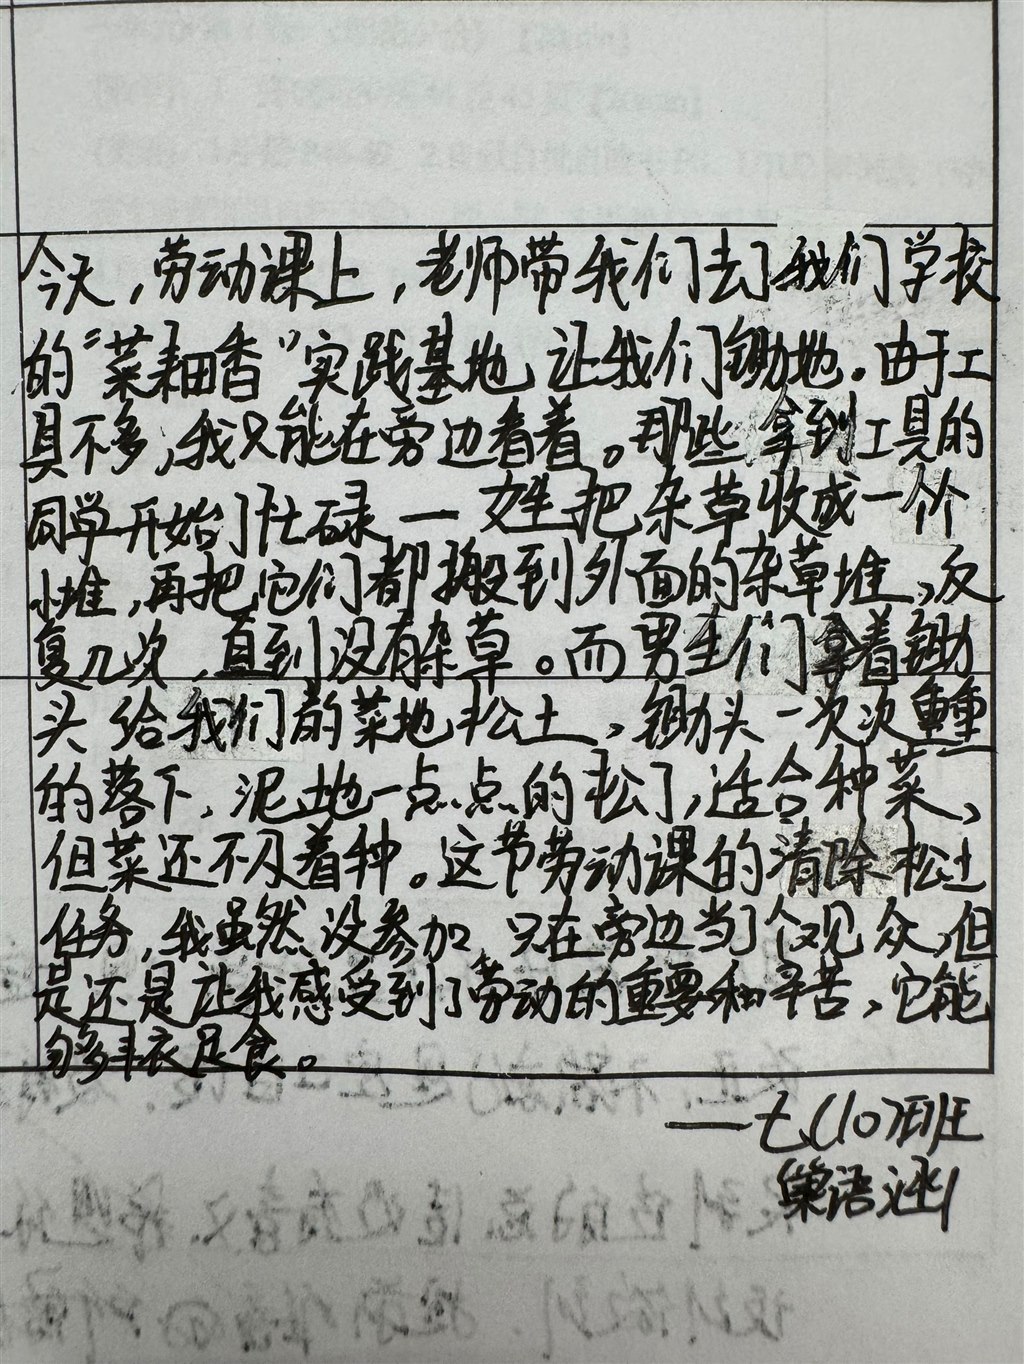 今天，劳动课上，老师带我们去了我们学校
的“菜耕田香”实践基地，让我们锄地。由于工
具不多，我只能在旁边看着。那些拿到工具的
同学开始了忙碌——女生把杂草收成一个个
小堆，再把它们都搬到外面的杂草堆，反
复几次，直到没有杂草。而男生们拿着锄
头给我们的菜地松土，锄头一次次重重
的落下，泥地一点点的松了，适合种菜，
但菜还不及着种。这节劳动课的清除松土
任务，我虽然没参加，只在旁边当了个观众，但
是还是让我感受到了劳动的重要和辛苦，它能
够丰衣足食。
——七（10）班
巢语涵